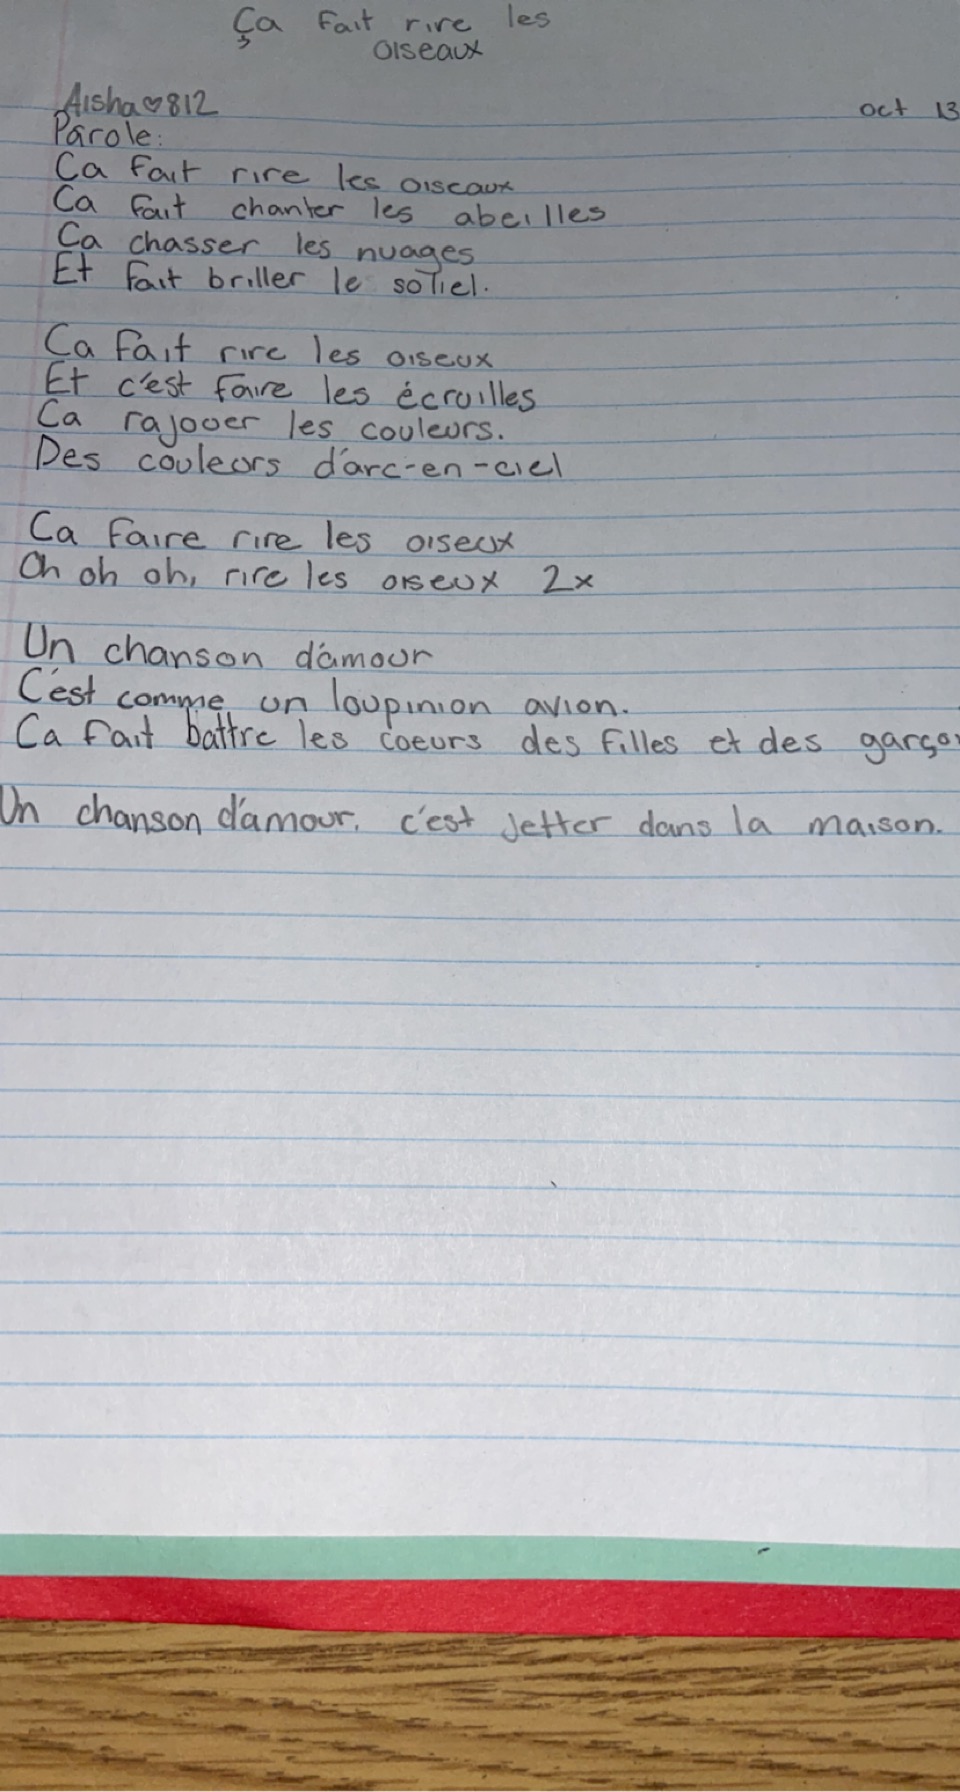 Ça fait rire les
oiseaux
Aisha♡812
oct 13
Parole:
Ca fait rire les oiseaux
Ca fait chanter les abeilles
Ca chasser les nuages
Et fait briller le soliel.
Ca fait rire les oiseux
Et c'est faire les écruilles
Ca rajouer les couleurs.
Des couleurs d'arc-en-ciel
Ca faire rire les oiseux
Oh oh oh, rire les oiseux 2x
Un chanson d'amour
C'est comme un loupinion avion.
Ca fait battre les coeurs des filles et des garço
Un chanson d'amour. c'est jetter dans la maison.